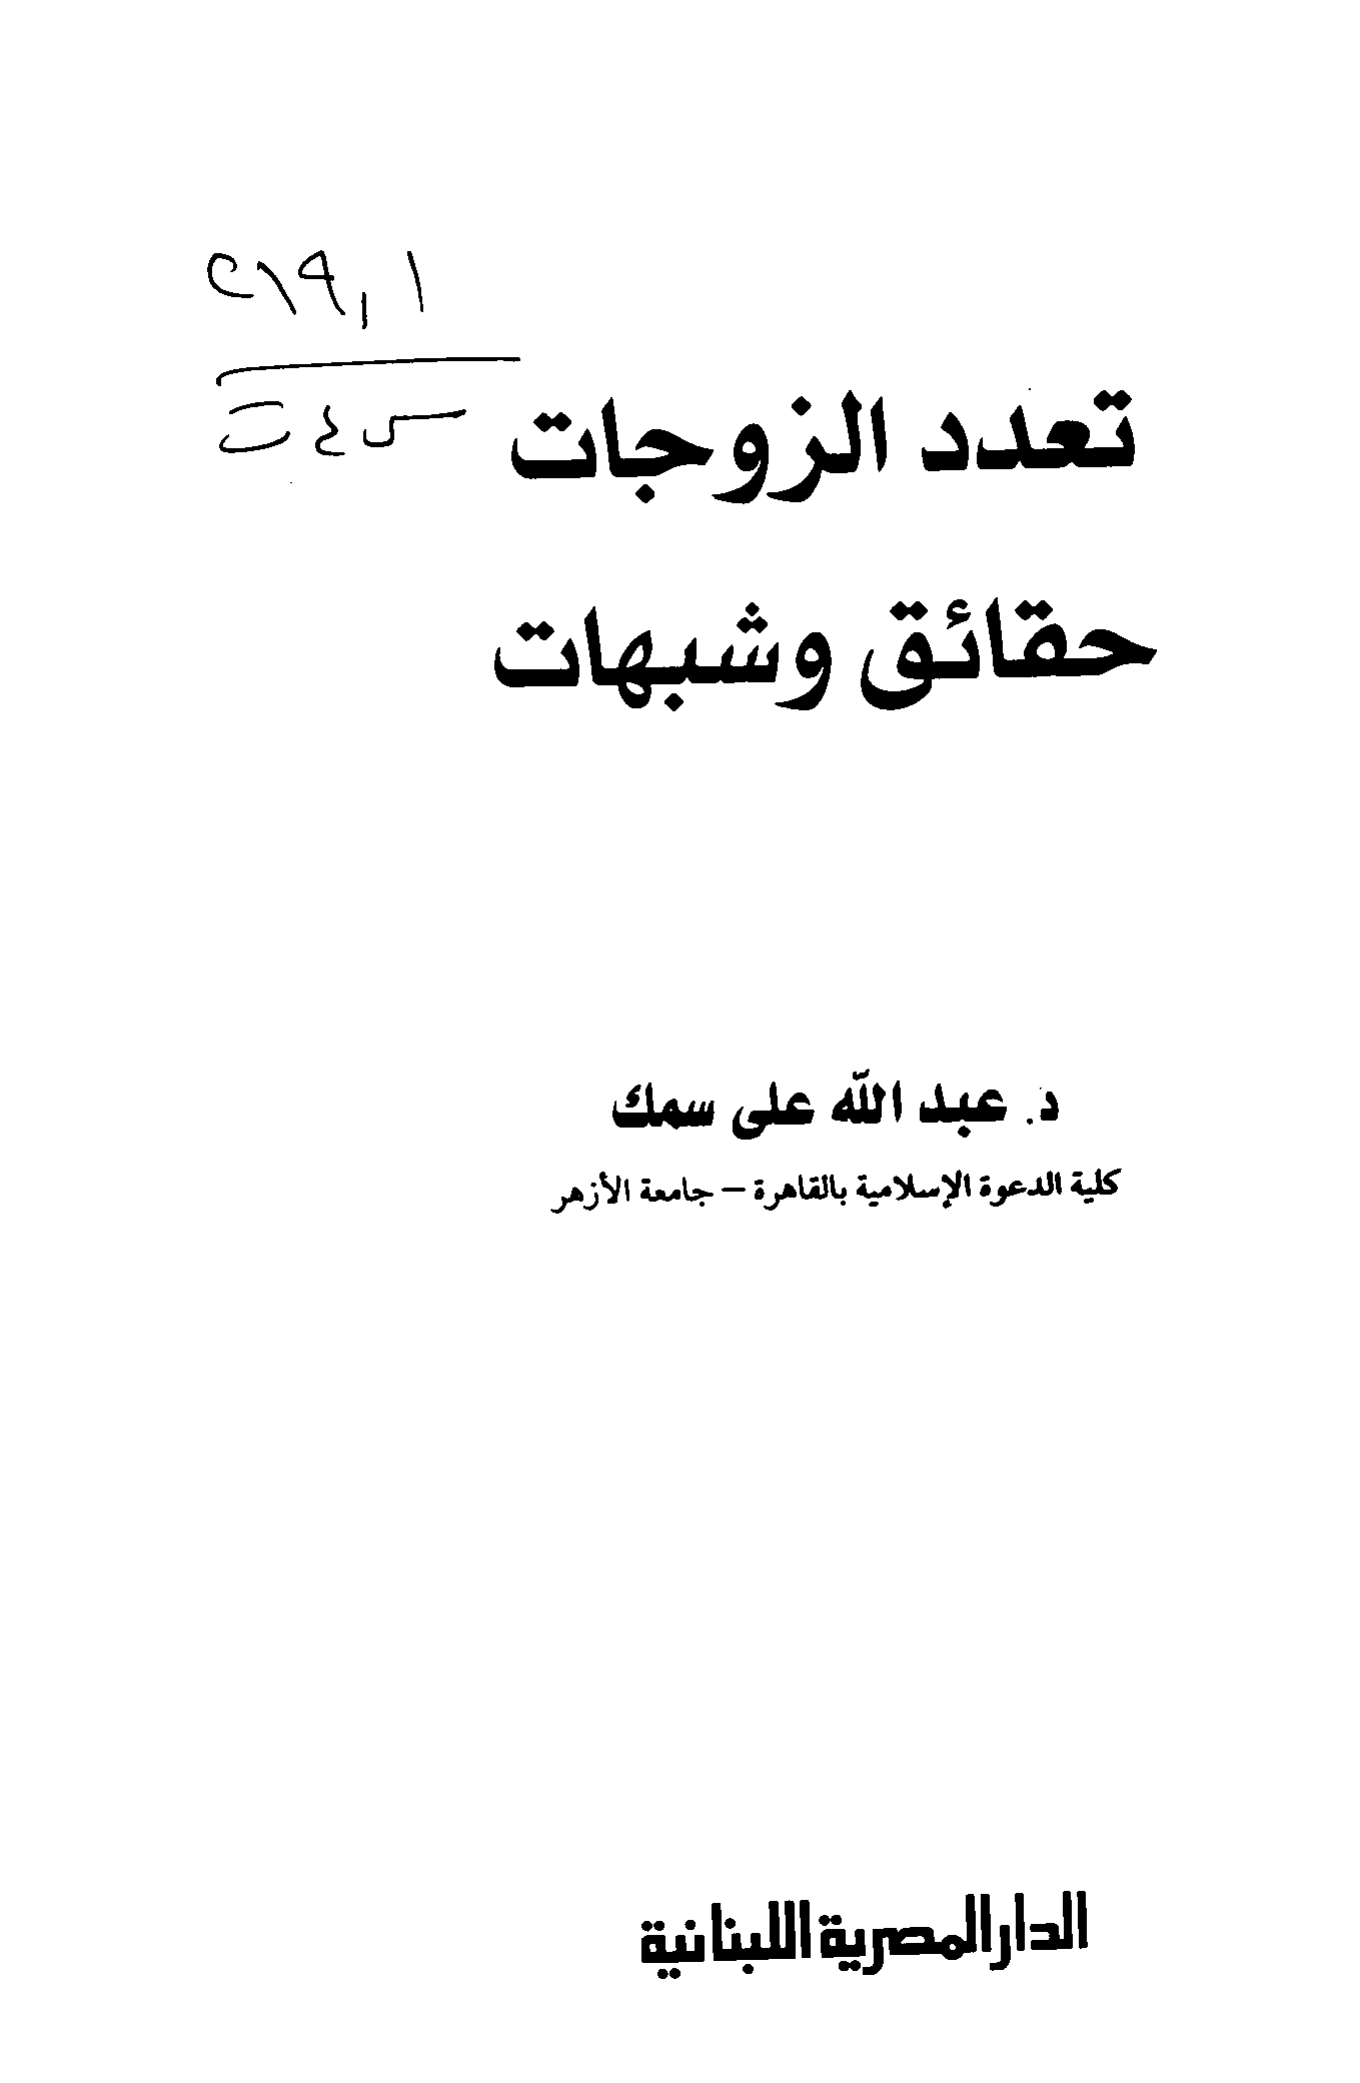 ٢١٩,١
تعدد الزوجات
حقائق وشبهات
د. عبد الله على سمك
كلية الدعوة الإسلامية بالقاهرة – جامعة الأزهر
الدار المصرية اللبنانية